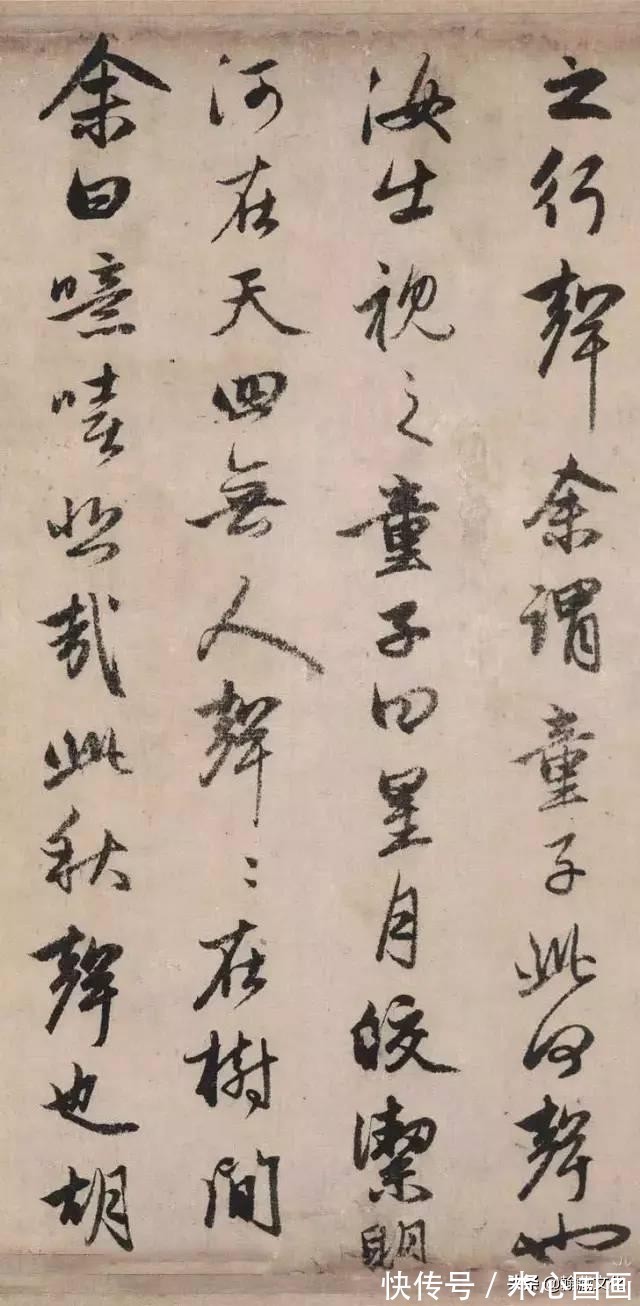 之行聲余謂童子此何聲也
汝出視之童子曰星月皎潔明
河在天四無人聲〻在樹間
余曰噫嘻悲哉此秋聲也胡
快传号 / 水心国画